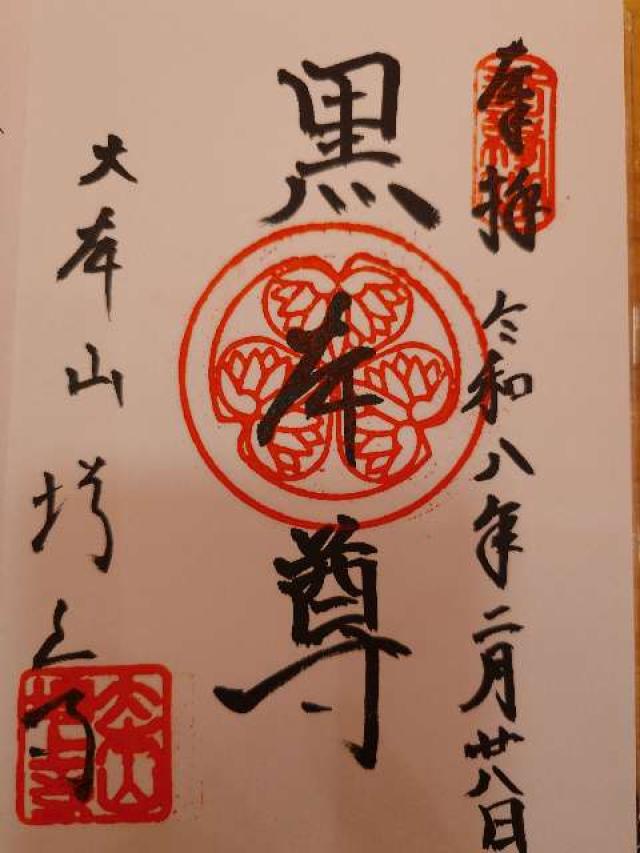 奉拝
令和八年二月廿八日
黒本尊
大本山増上寺